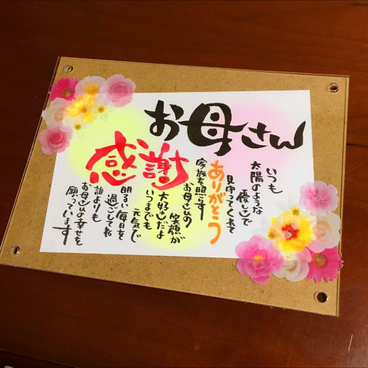 お母さん
感謝
いつも
太陽のような
優しさで
見守ってくれて
ありがとう
家族を照らす
お母さんの
笑顔が
大好きだよ
いつまでも
元気で
明るい毎日を
過ごしてね
誰よりも
お母さんの幸せを
願っています